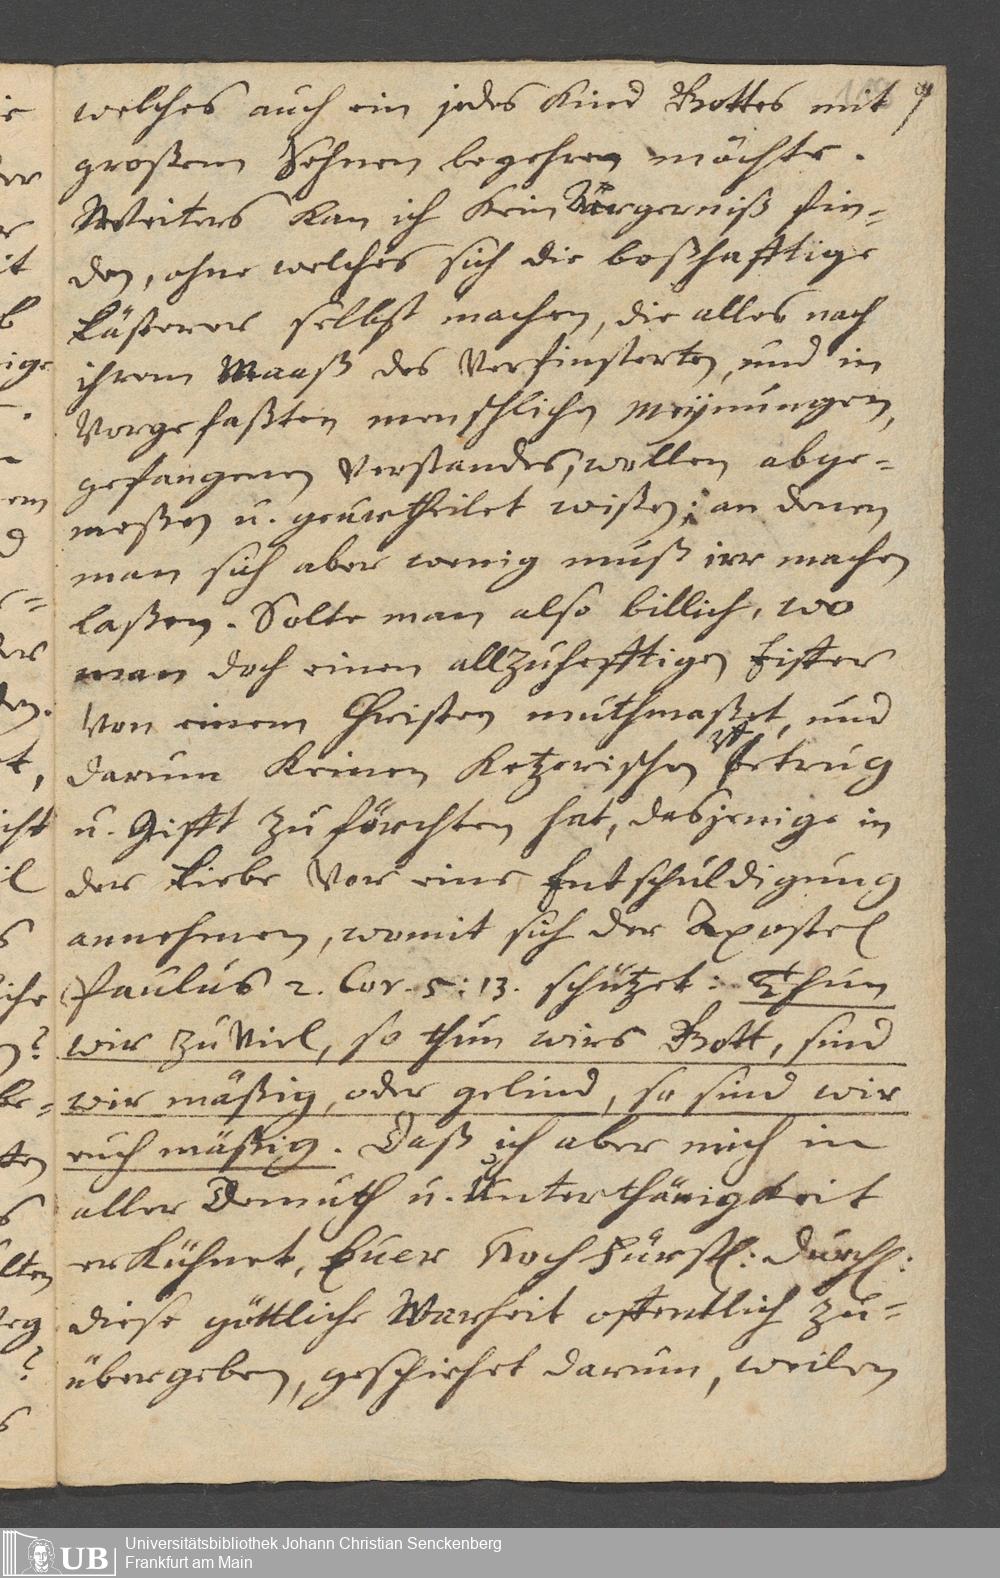 welches auch ein jedes Kind Gottes mit
großem Sehnen begehren möchte.
Weiters kan ich kein Ärgerniß fin=
den, ohne welches sich die boßhafftige
Lästerer selbst machen, die alles nach
ihrem Maaß des Verfinsterten, und in
Vorgefaßten menschlichen Meÿnungen,
gefangenen Verstandes, wollen abge=
meßen u. geurtheilet wißen; an denen
man sich aber wenig muß irr machen
laßen. Solte man also billich, wo
man doch einen allzuhefftigen Eiffer
Von einem Christen muthmaßet, und
darum keinen Ketzerischen Betrug
u. Gifft zu förchten hat, dasjenige in
der Liebe Vor eine Entschuldigung
annehmen, womit sich der Apostel
Paulus 2. Cor. 5: 13. schützet: Thun
wir zu Viel, so thun wirs Gott, sind
wir mäßig, oder gelind, so sind wir
euch mäßig. Daß ich aber mich in
aller Demuth u. Unterthänigkeit
erkühnet, Euer Hochfürstl: Durchl:
diese göttliche Warheit offentlich zu=
übergeben, geschiehet darum, weilen
UB
Universitätsbibliothek Johann Christian Senckenberg
Frankfurt am Main